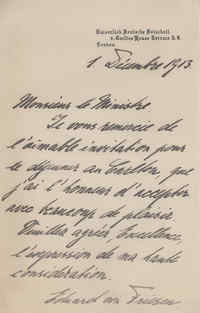 Kaiserlich Deutsche Botschaft
9, Carlton House Terrace S.W.
London
1. Décembre 1913
Monsieur le Ministre
Je vous remercie de
l'aimable invitation pour
le déjeuner au Carlton, que
j'ai l'honneur d'accepter
avec beaucoup de plaisir
Veuillez agréer, Excellence,
l'expression de ma haute
considération.
Eduard von